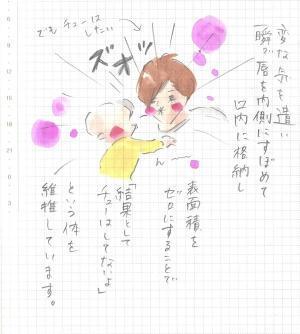 変な気を遣い
一瞬で唇を内側にすぼめて
口内に格納し
でもチューはしたい
ズオッ
ん
表面積を
ゼロにすることで
「結果として
チューはしてないよ」
という体を
維持しています。